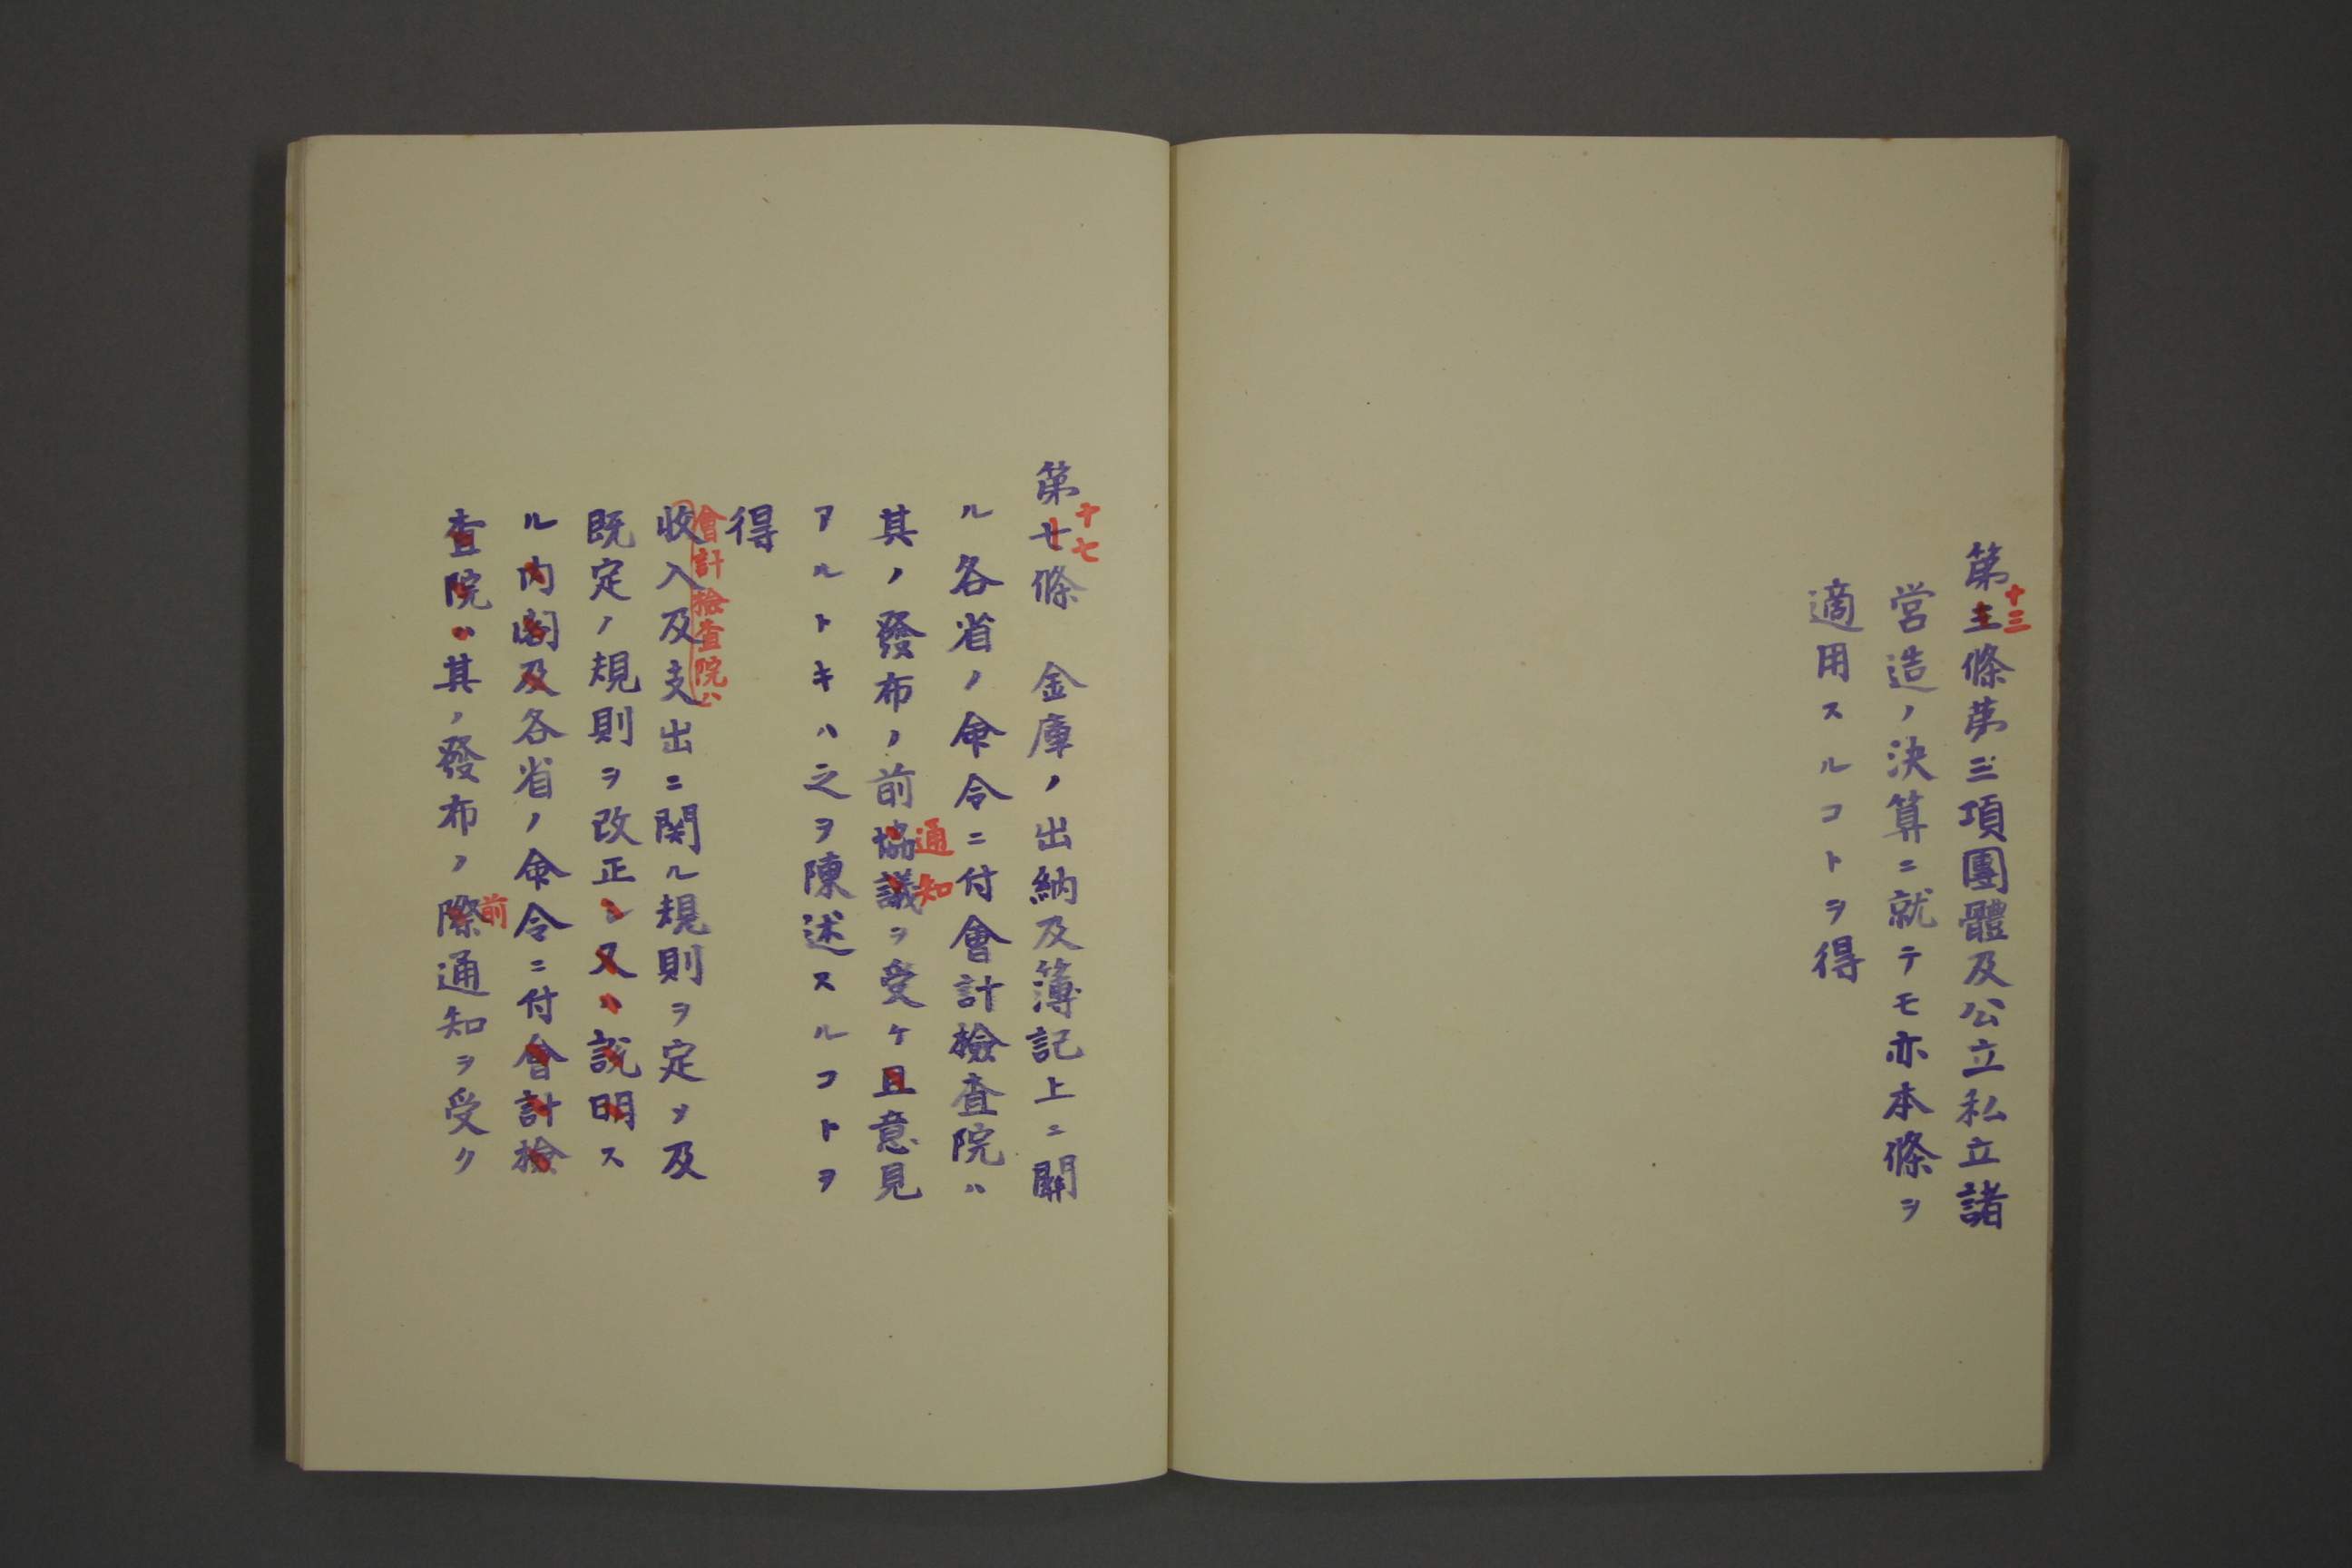 第三條第三項團體及公立私立諸
十三
営造ノ決算ニ就テモ亦本條ヲ
適用スルコトヲ得
第七條　金庫ノ出納及簿記上ニ關
十七
ル各省ノ命令ニ付會計檢査院ハ
其ノ發布ノ前協議ヲ受ケ且意見
通知
アルトキハ之ヲ陳述スルコトヲ
得
會計檢査院ハ
收入及支出ニ関ル規則ヲ定メ及
既定ノ規則ヲ改正シ又ハ説明ス
ル内閣及各省ノ命令ニ付會計檢
査院ハ其ノ發布ノ際通知ヲ受ク
前